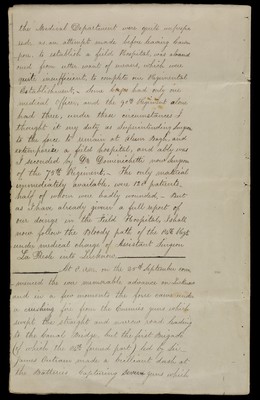 the Medical Department were quite unprepa
red, as an attempt made before leaving Cawn
pore, to establish a field Hospital, was abando
ned from utter want of means, which were
quite insufficient to complete one Regimental
Establishment. Some Corps had only one
medical Officer, and the 90th Regiment alone
had three, under these circumstances I
thought it my duty as Superintending Surgeon
to the force to remain at Alum Bagh and
extemporize a field hospital, and ably was
I seconded by Dr Dominichetti now Surgeon
of the 75th Regiment. The only material
immediately available, were 128 patients,
half of whom were badly wounded. But
as I have already given a full report of
our doings in the Field Hospital, I shall
now follow the bloody path of the 84th Regt
under medical charge of Assistant Surgeon
La Presle into Lucknow.
At 8. A.M. on the 25th September com
menced the ever memorable advance on Lucknow
and in a few moments the force came under
a crushing fire from the Enemies guns which
swept the straight and narrow road leading
to the Canal Bridge, but the first Brigade
(of which the 84th formed part) led by Sir
James Outram made a brilliant dash at
the Batteries Capturing several guns which